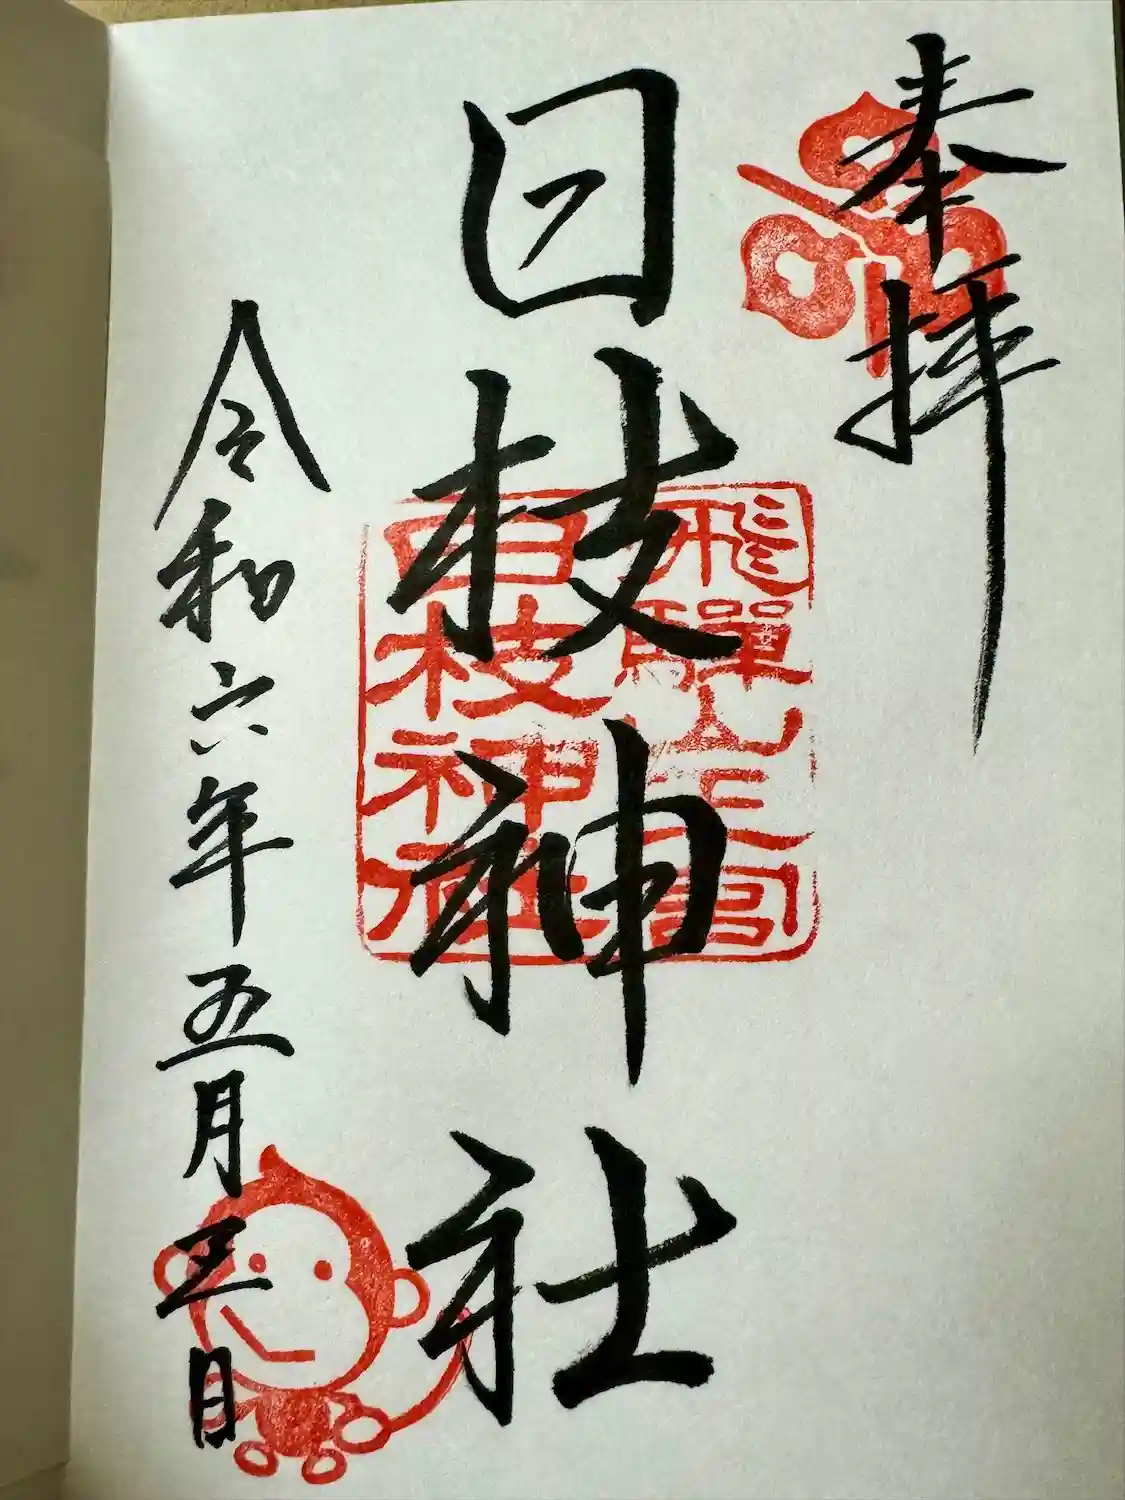 奉拝
日枝神社
飛驒山王宮
日枝神社
令和六年五月三日